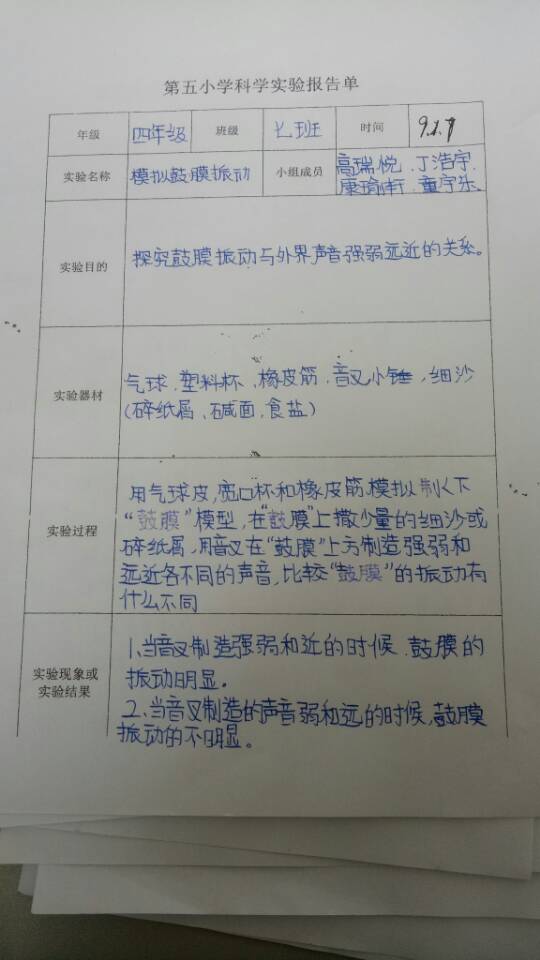 第五小学科学实验报告单
年级 四年级 班级 七班 时间
实验名称 模拟鼓膜振动 小组成员 高瑞悦、丁浩宇、
康瑜轩、童宇乐
实验目的 探究鼓膜振动与外界声音强弱远近的关系。
实验器材 气球、塑料杯、橡皮筋、音叉小锤、细沙
(碎纸屑、碱面、食盐)
用气球皮,宽口杯和橡皮筋模拟制以下
“鼓膜”模型,在“鼓膜”上撒少量的细沙或
实验过程 碎纸屑,用音叉在“鼓膜”上方制造强弱和
远近各不同的声音,比较“鼓膜”的振动有
什么不同
1、当音叉制造强弱和近的时候、鼓膜的
实验现象或 振动明显。
实验结果 2、当音叉制造的声音弱和远的时候,鼓膜
振动的不明显。